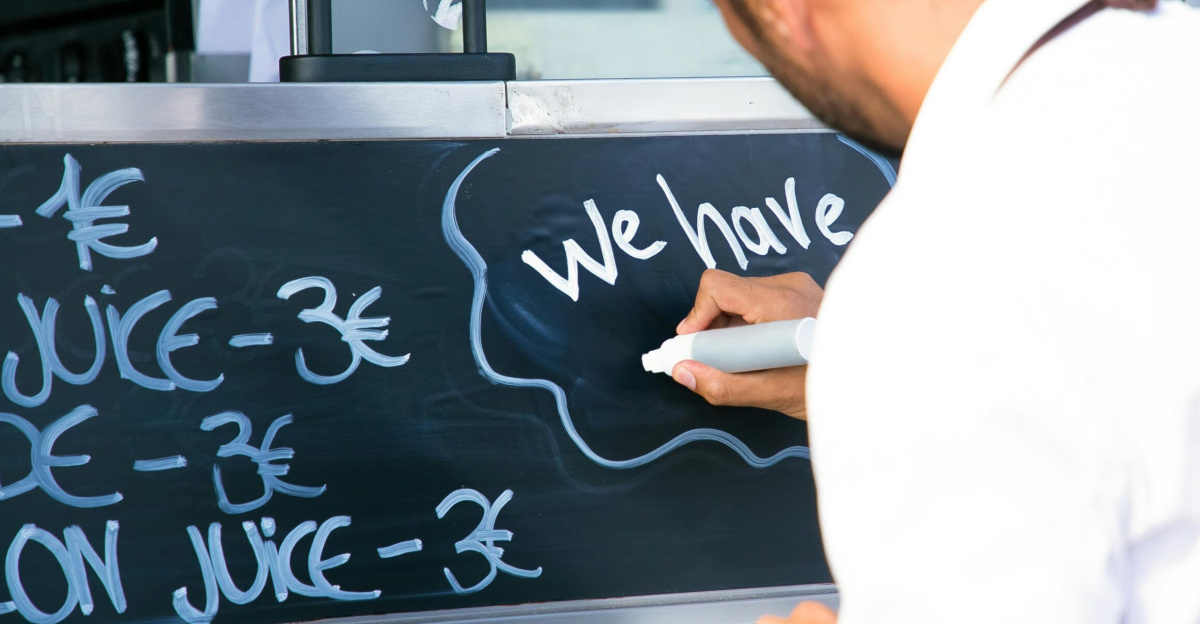 - 1€
JUiCE - 3€
- 3€
JUiCE - 3€
We have